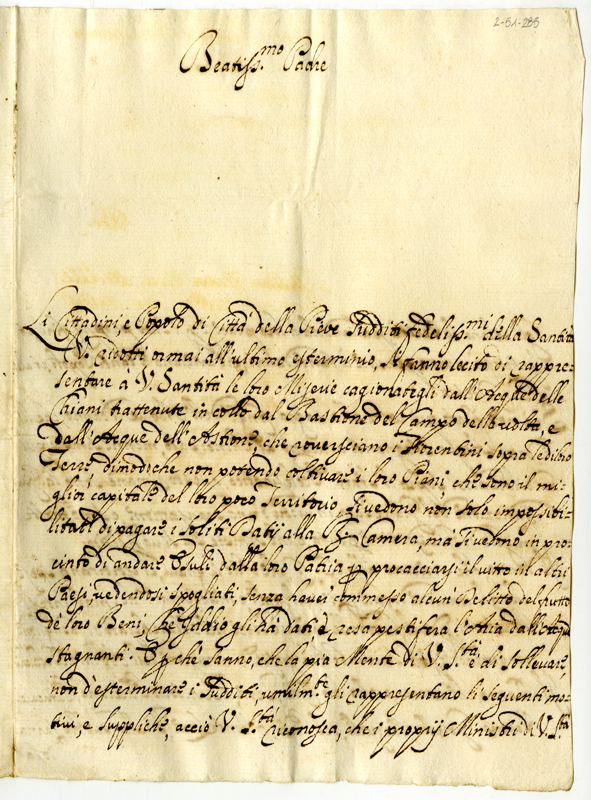 2-51-285
Beatiss.mo Padre
Li Cittadini, e Popolo di Città della Pieve sudditi fedeliss.mi della Santità
V. ridotti ormai all'ultimo esterminio, si fanno lecito di rappre-
sentare à V. Santità le loro Miserie cagionategli dall'Acque delle
Chiani trattenute in collo dal Bastione del Campo della volta, e
dall'Acque dell'Astrone, che roversciano i Fiorentini sopra le dilor
Terre, dimodoche non potendo coltivare i loro Piani, che sono il mi-
glior capitale del loro poco Territorio, si vedono non solo impossibi-
litati di pagare i soliti Datij alla R. Camera, mà si vedono in pro-
cinto di andare Esuli dalla loro Patria p procacciarsi il vitto in altri
Paesi, vedendosi spogliati, senza haver commesso alcun Delitto del frutto
de loro Beni, che Iddio gli hà dati, e resa pestifera l'Aria dall'Acque
stagnanti. E pche sanno, che la pia Mente di V. S.tà è di sollevare,
non d'esterminare i sudditi umilm.te gli rappresentano li seguenti mo-
tivi, e suppliche, acciò V. S.tà riconosca, che i proprij Ministri di V. S.tà